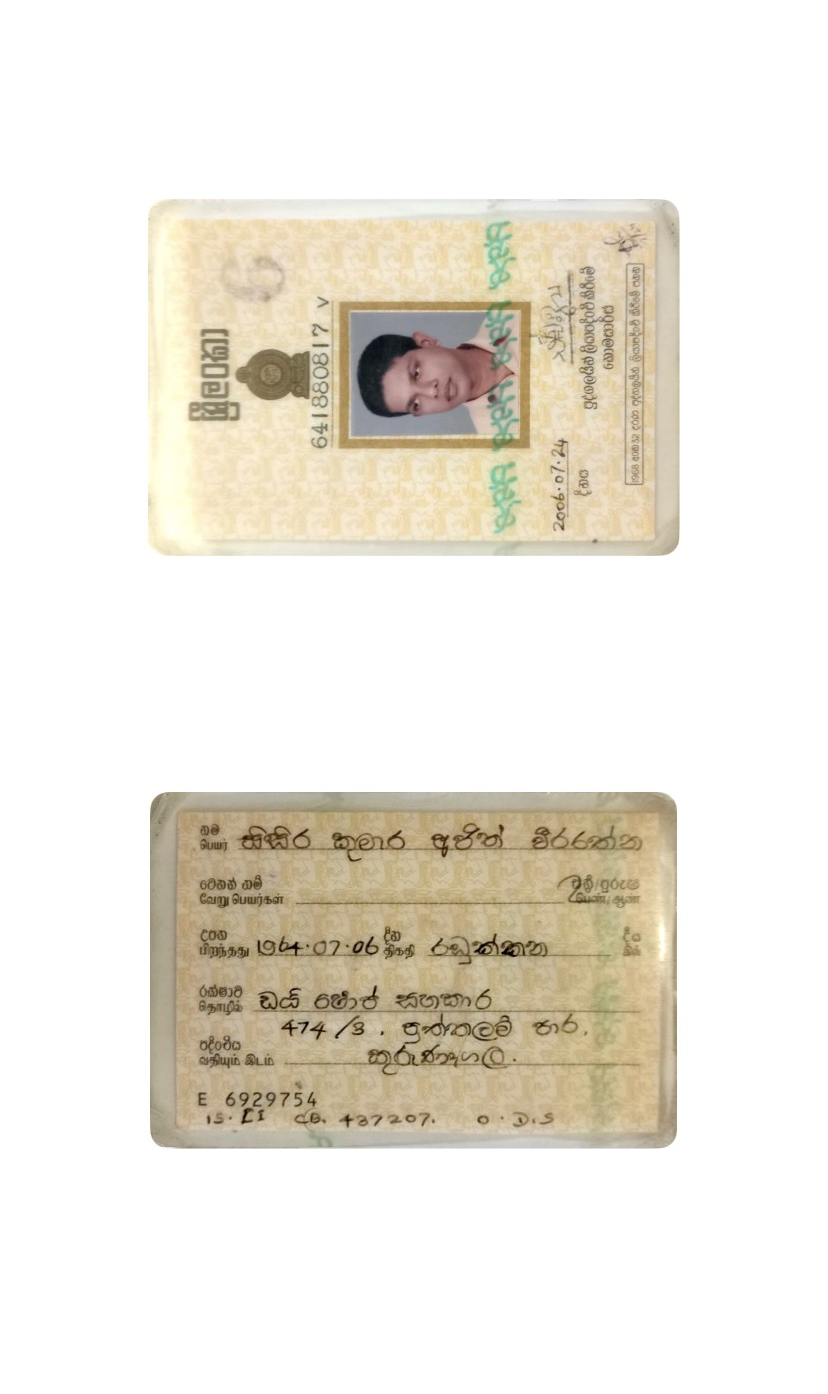 ශ්‍රී ලංකා
641880817 V
2006.07.24
දිනය
පුද්ගලයින් ලියාපදිංචි කිරීමේ
කොමසාරිස්
1968 අංක 32 දරණ පුද්ගලයින් ලියාපදිංචි කිරීමේ පනත
නම
பெயர்
සිසිර කුමාර අජිත් වීරරත්න
වෙනත් නම්
வேறு பெயர்கள்
ස්ත්‍රී/පුරුෂ
பெண்/ஆண்
උපන්
பிறந்தது
1964.07.06
දින
திகதி
රඹුක්කන
දීය
රක්ෂාව
தொழில்
ඩයි ෂොප් සහකාර
474/3, පුත්තලම් පාර,
පදිංචිය
வதியும் இடம்
කුරුණෑගල.
E 6929754
CB. 437207. O.D.S